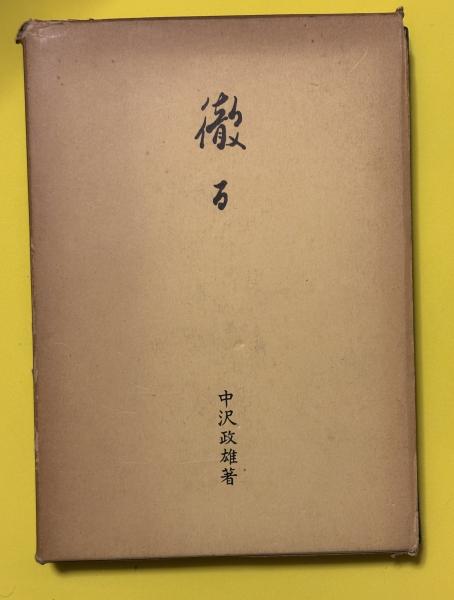 徹る
中沢政雄著